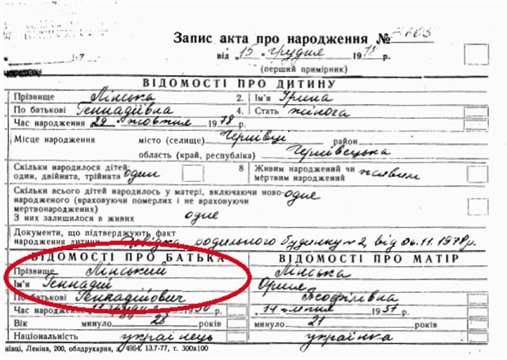 Запис акта про народження №
від 15 грудня 1978 р.
(перший примірник)
ВІДОМОСТІ ПРО ДИТИНУ
Прізвище Лінська 2. Ім'я Ірина
По батькові Геннадіївна 4. Стать жіноча
Час народження 29 жовтня 1978 р.
Місце народження місто (селище) Чернівці район
область (край, республіка) Чернівецька
Скільки народилося дітей: 8 Живим народжений чи
один, двійня, трійня один мертвим народжений живим
Скільки всього дітей народилось у матері, включаючи ново-
народженого (враховуючи померлих і не враховуючи одне
мертвонароджених)
З них залишилося в живих одне
Документи, що підтверджують факт
народження дитини довідка родильного будинку №2 від 06.11.1978р.
ВІДОМОСТІ ПРО БАТЬКА ВІДОМОСТІ ПРО МАТІР
Прізвище Лінський Лінська
Ім'я Геннадій
По батькові Геннадійович Теофілівна
Час народження 14 1957
Вік минуло 28 років минуло 21 років
Національність українець українка
вівці, Леніна, 200, облдрукарня, 4954, 13.7-77, т. 300х100